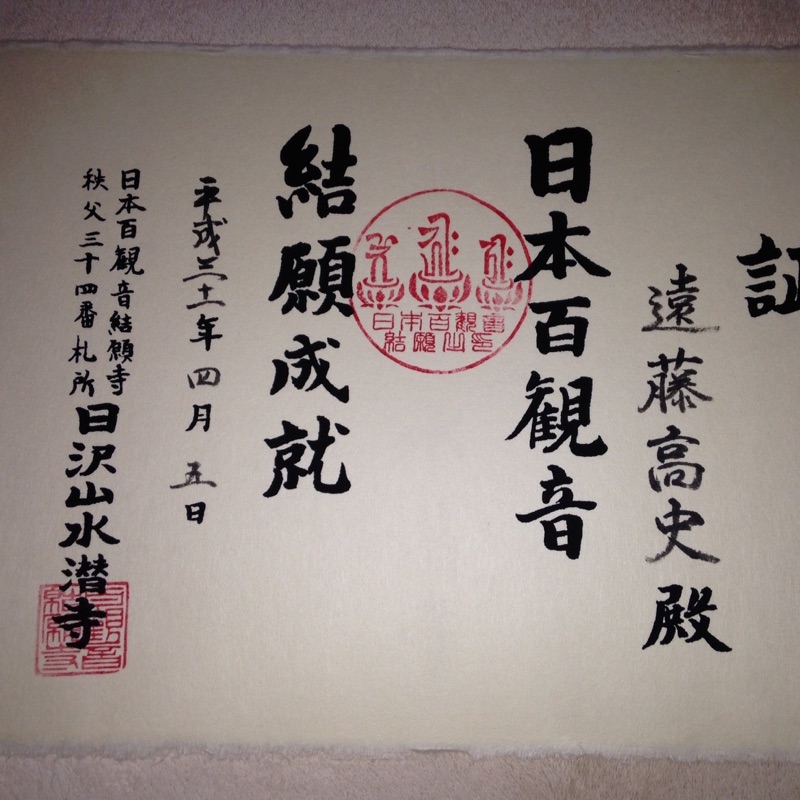 証
遠藤高史殿
日本百観音
日本百観音
結願
結願成就
平成三十一年四月五日
日本百観音結願寺
秩父三十四番札所 日沢山水潜寺